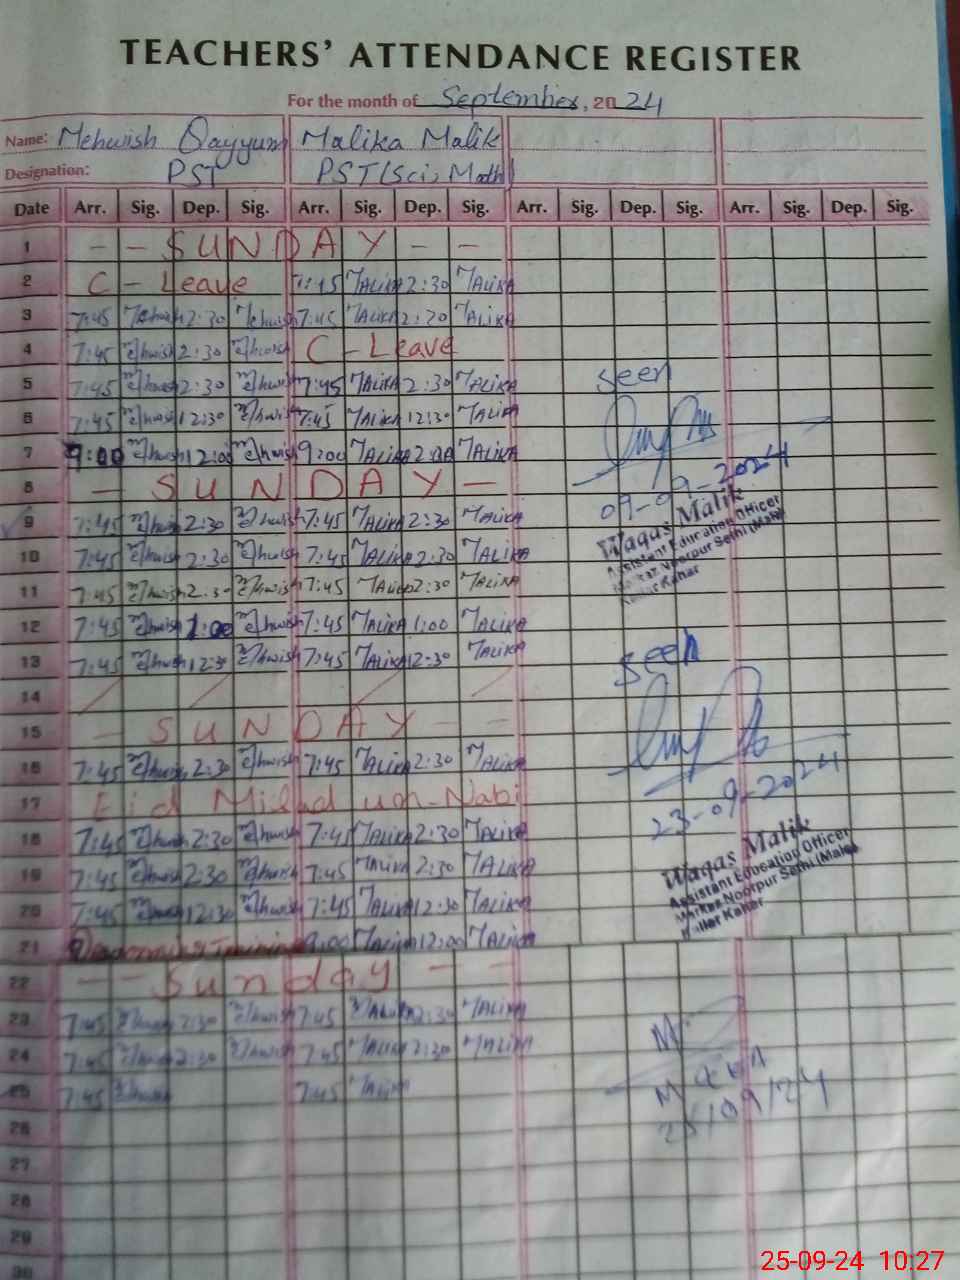 TEACHERS' ATTENDANCE REGISTER
For the month of September, 2024
Name: Mehwish Qayyum Malika Malik
Designation: PST PST (Sci, Math)
Date Arr. Sig. Dep. Sig. Arr. Sig. Dep. Sig. Arr. Sig. Dep. Sig. Arr. Sig. Dep. Sig.
1 - - SUNDAY - -
2 C - Leave MALIKA 2:30 MALIKA
3 7:45 Mehwish 2:30 Mehwish 7:45 MALIKA 2:30 MALIKA
4 7:45 Mehwish 2:30 Mehwish C - Leave
5 7:45 Mehwish 2:30 Mehwish 7:45 MALIKA 2:30 MALIKA
seen
6 7:45 Mehwish 12:30 Mehwish 7:45 MALIKA 12:30 MALIKA
7 9:00 Mehwish 12:00 Mehwish 9:00 MALIKA 2:00 MALIKA
8 - SUNDAY -
09-09-2024
9 7:45 Mehwish 2:30 Mehwish 7:45 MALIKA 2:30 MALIKA
Waqas Malik
Assistant Education Officer
Markaz Noorpur Sethi (Male)
Kallar Kahar
10 7:45 Mehwish 2:30 Mehwish 7:45 MALIKA 2:30 MALIKA
11 7:45 Mehwish 2:30 Mehwish 7:45 MALIKA 2:30 MALIKA
12 7:45 Mehwish 1:00 Mehwish 7:45 MALIKA 1:00 MALIKA
13 7:45 Mehwish 12:30 Mehwish 7:45 MALIKA 12:30 MALIKA
seen
14
15 - SUNDAY - -
16 7:45 Mehwish 2:30 Mehwish 7:45 MALIKA 2:30 MALIKA
17 Eid Milad un-Nabi
23-09-2024
18 7:45 Mehwish 2:30 Mehwish 7:45 MALIKA 2:30 MALIKA
Waqas Malik
Assistant Education Officer
Markaz Noorpur Sethi (Male)
Kallar Kahar
19 7:45 Mehwish 2:30 Mehwish 7:45 MALIKA 2:30 MALIKA
20 7:45 Mehwish 12:30 Mehwish 7:45 MALIKA 12:30 MALIKA
21 Training 9:00 MALIKA 12:00 MALIKA
22 - - Sunday - -
23 7:45 Mehwish 2:30 Mehwish 7:45 MALIKA 2:30 MALIKA
24 7:45 Mehwish 2:30 Mehwish 7:45 MALIKA 2:30 MALIKA
25 7:45 Mehwish 7:45 MALIKA
25/09/24
26
27
28
29
30
25-09-24 10:27